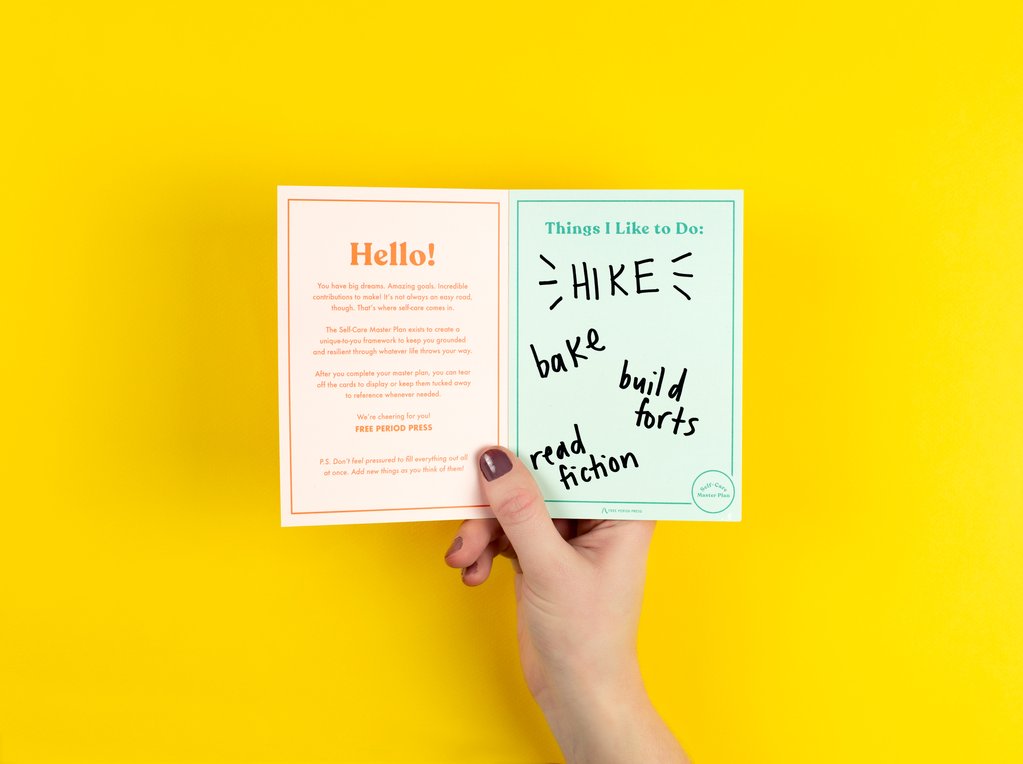 Hello!
You have big dreams. Amazing goals. Incredible
contributions to make! It's not always an easy road,
though. That's where self-care comes in.
The Self-Care Master Plan exists to create a
unique-to-you framework to keep you grounded
and resilient through whatever life throws your way.
After you complete your master plan, you can tear
off the cards to display or keep them tucked away
to reference whenever needed.
We're cheering for you!
FREE PERIOD PRESS
P.S. Don't feel pressured to fill everything out all
at once. Add new things as you think of them!
Things I Like to Do:
HIKE
bake
build
forts
read
fiction
Self-Care
Master Plan
FREE PERIOD PRESS